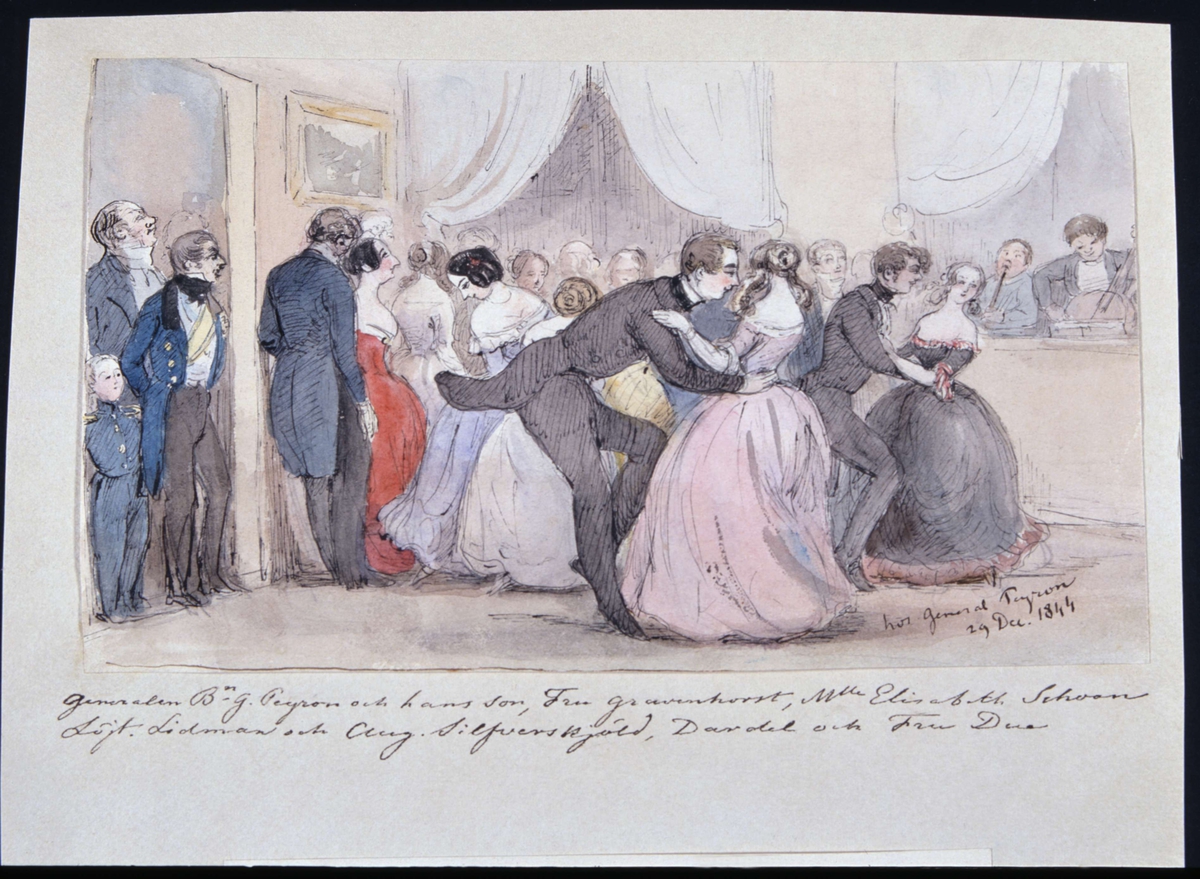 hos General Peyron
29 Dec. 1844
Generalen Bn G. Peyron och hans son, Fru Gravenhorst, Mlle Elisabeth Schoon
Löjt. Lidman och Aug. Silfverskjöld, Dardel och Fru Due